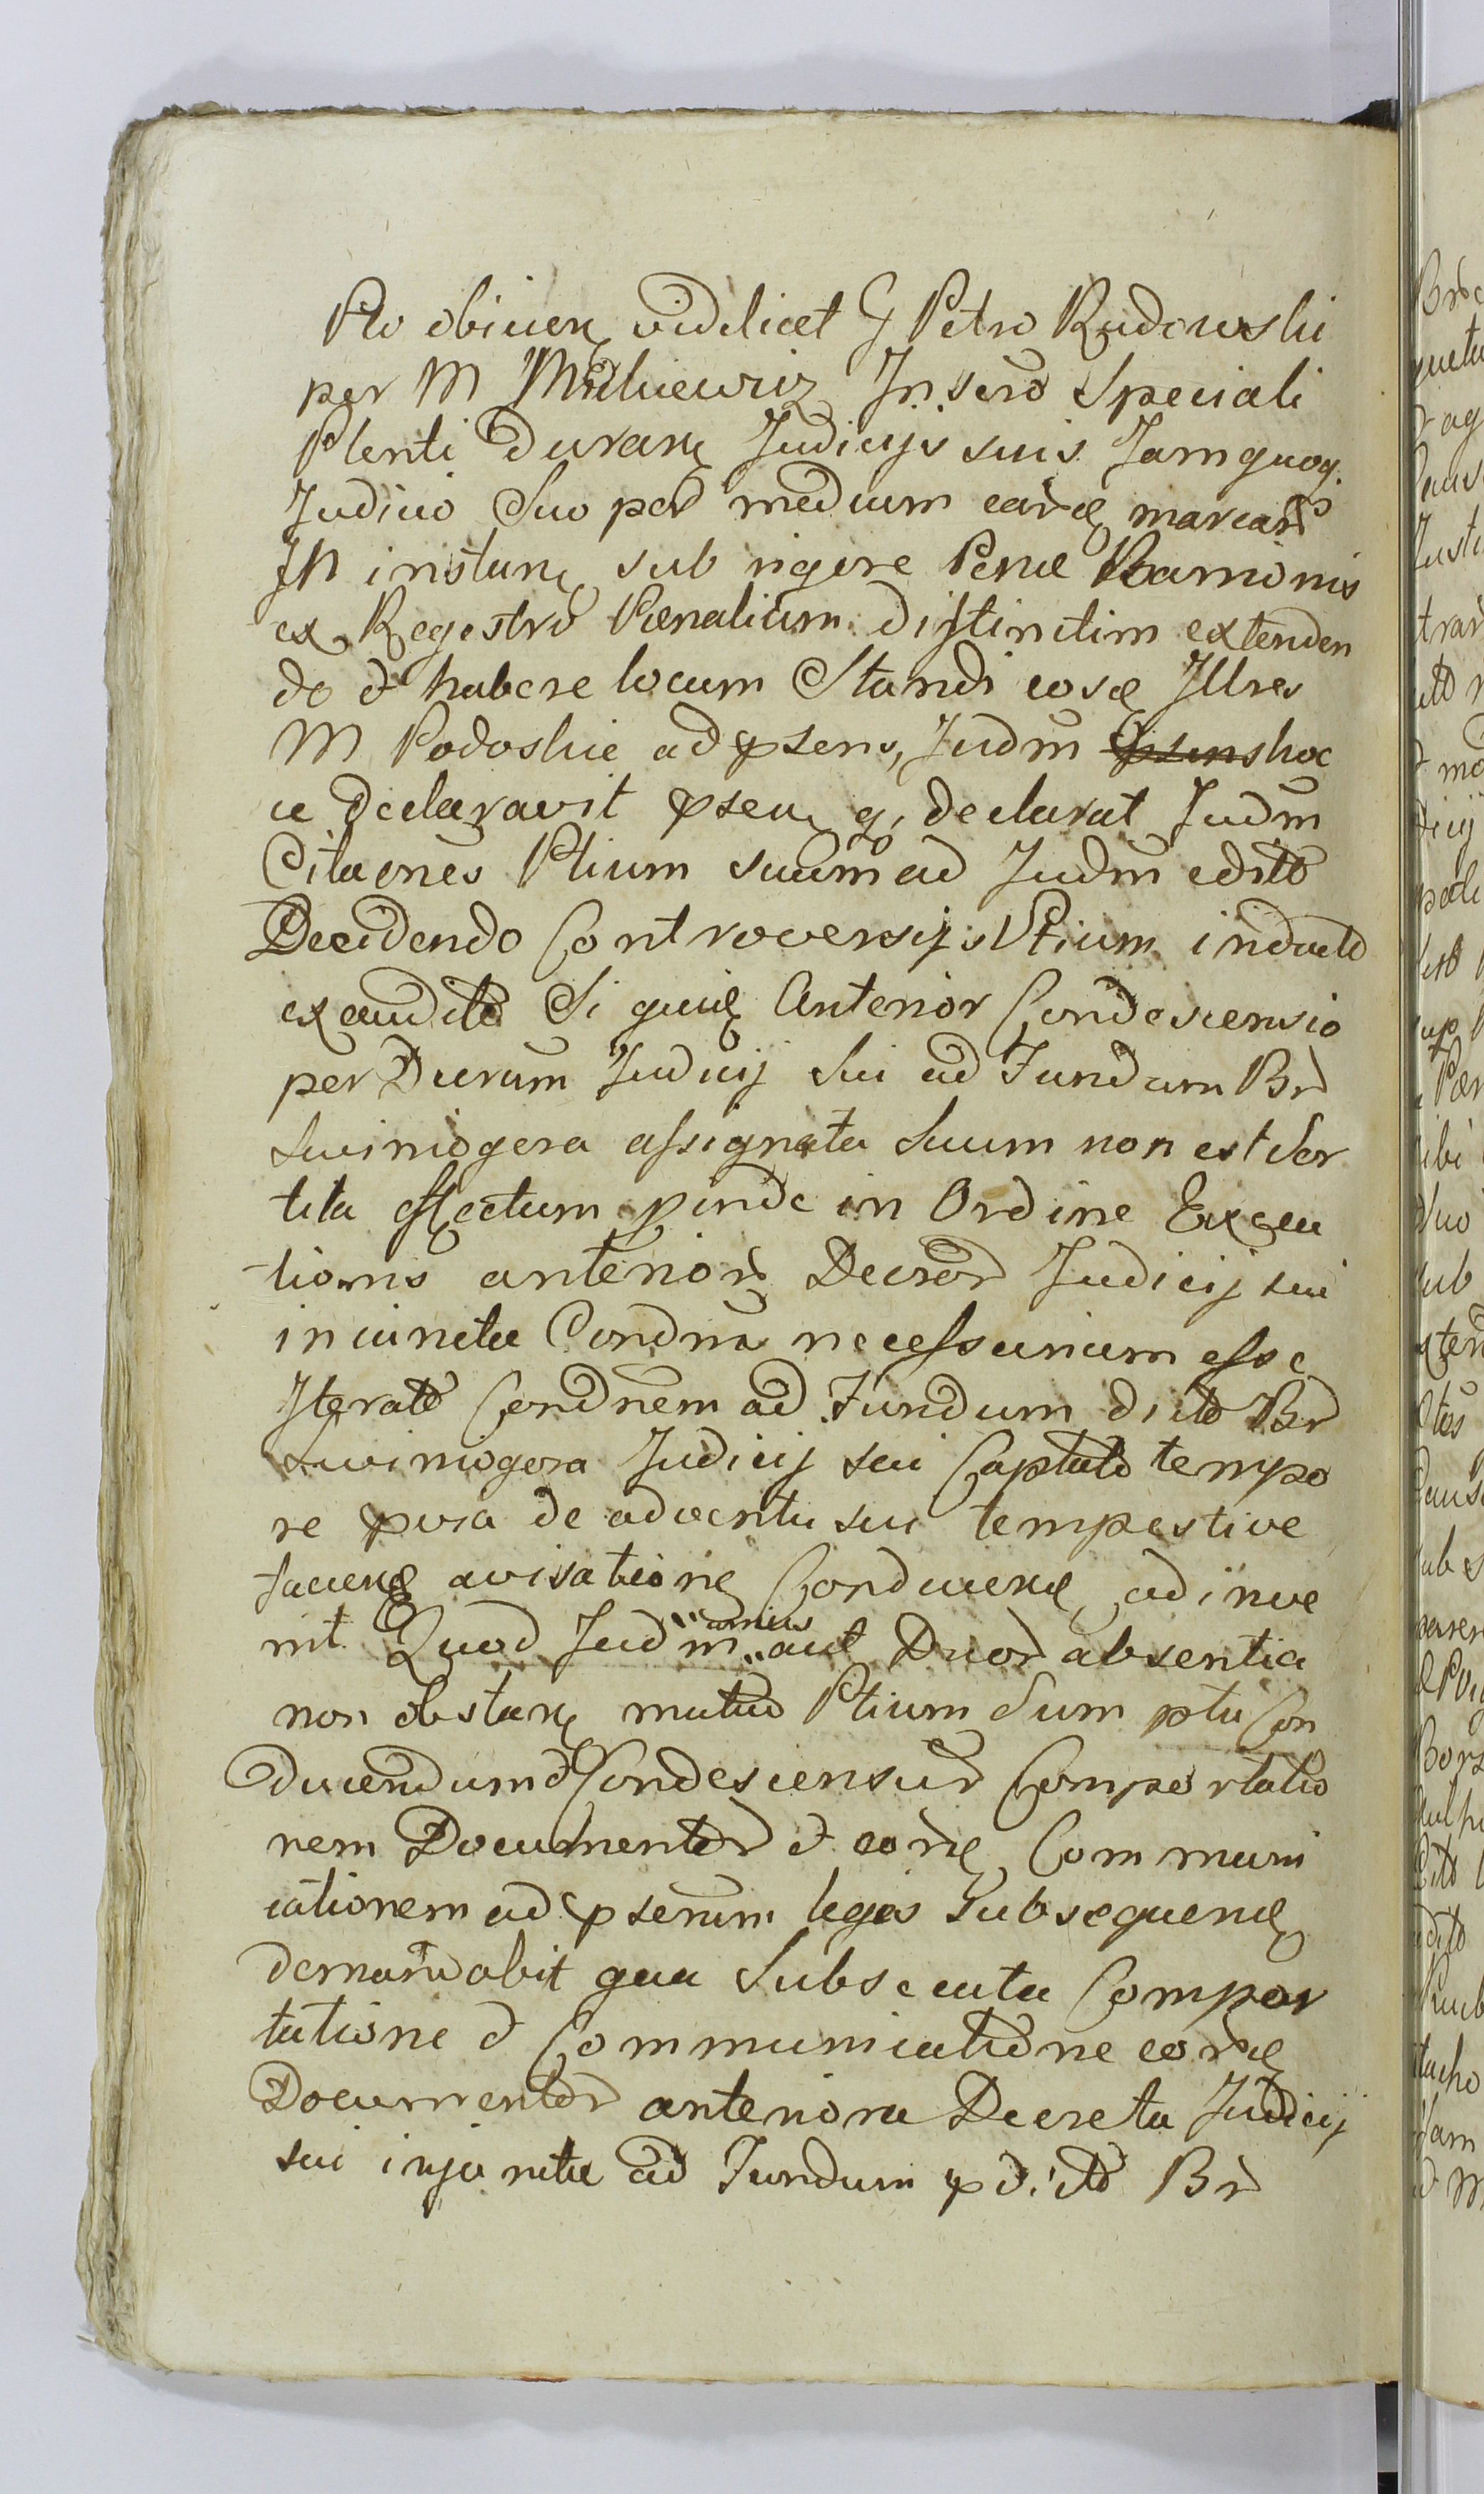 Pto obiicien videlicet G Petro Rudowski
per M Michiewicz Inserto Speciali
Plenti duran Judicijs suis Jamquoq
Judicio Suo per medium earud marcar
JM instan sub rigore Penae Bannonis
ex Regestro Paenalium distinctim extenden
do & habere locum Standi eosd Illres
M Podoskie ad psens Judm hoc
ce declaravit psen q declarat Judm
Citaones Ptium suum ad Judm edito
Decidendo Controversijs Ptium inducto
exaudito Si quid Anterior Condescensio
per Decrum Judicij Sui ad Fundum Br
Swiniogora assignata Suum non est Sor
tita effectum pinde in Ordine Execu
tionis anterior Decror Judicij sui
iniuncta Condna necessarium esse
Iterato Condnem ad Fundum dicto Br
Swiniogora Judicij sui Captato tempo
re pvia de adventu sui tempestive
facien avisatione Conducen adinve
nit Quod Judm unius aut Duor absentia
non obstan mutuo Ptium Sum ptu Con
ducendum & Condescensur Comportatio
nem Documentor & eord Communi
cationem ad pserum legis Subsequen
demandabit qua Subsecuta Compor
tatione & Communicatione eord
Documentor anteriora Decreta Judicij
sui injuncta ad Fundum pdicto Br